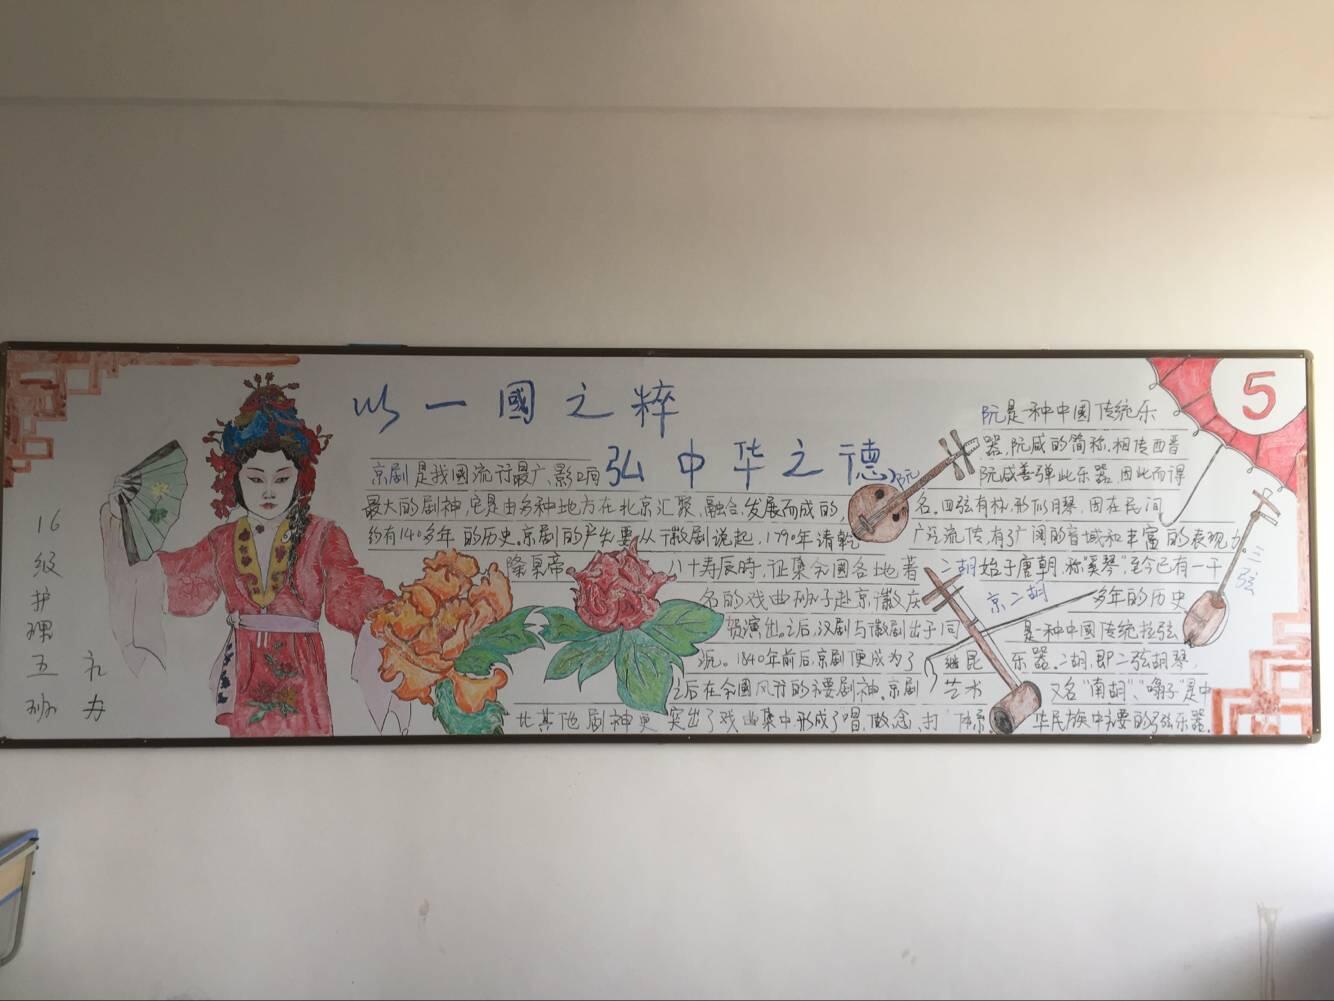 以一國之粹
弘中华之德
京剧是我國流行最广、影响
最大的剧神,它是由多种地方在北京汇聚、融合、发展而成的,
约有140多年的历史.京剧的产生要从徽剧说起,1790年请乾
隆皇帝
八十寿辰时,征集全國各地著
名的戏曲班子赴京,徽庆
贺演出。之后,汉剧与徽剧出于同
源。1840年前后,京剧便成为了
之后在全國风行的主要剧神.京剧
比其他剧神更突出了戏曲集中形成了唱、做、念、打
继昆
艺术
体系.
阮
阮是一种中國传统乐
器,阮咸的简称,相传西晋
阮咸善弹此乐器,因此而得
名。四弦有柱,形似月琴,因在民间
广泛流传,有宽广阔的音域和丰富的表现力
二胡始于唐朝,称"奚琴"至今已有一千
多年的历史
京二胡
是一种中國传统拉弦
乐器.二胡,即二弦胡琴,
又名"南胡"、"嗡子"是中
华民族中主要的弓弦乐器.
三弦
5
16级护理五班
承办